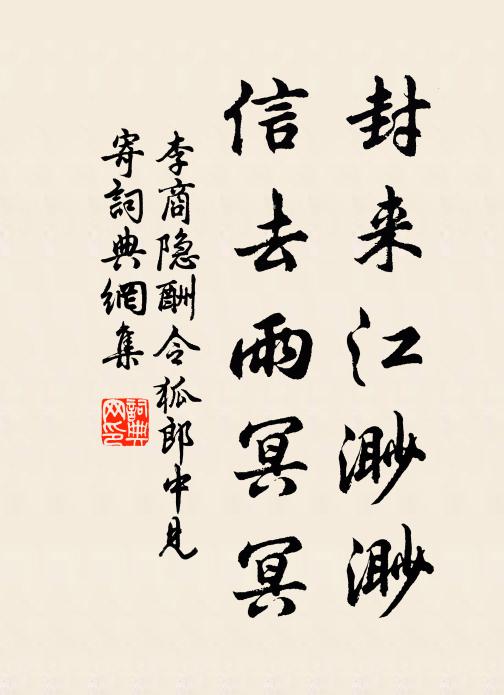 封来江渺渺
信去雨冥冥
李商隐酬令狐郎中見
寄詞典網集
詞典
网印